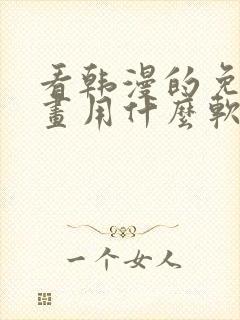 看韩漫的免
畫用什麼軟
一个女人